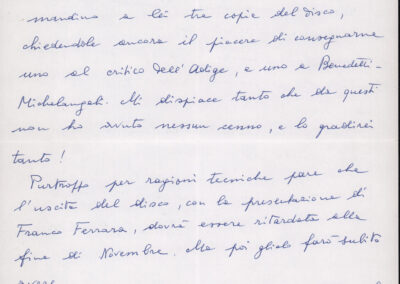 mandino a lei tre copie del disco,
chiedendole ancora il piacere di consegnarne
uno al critico dell'Adige, e uno a Benedetti-
Michelangeli. Mi dispiace tanto che da questi
non ho avuto nessun cenno, e lo gradirei
tanto!
Purtroppo per ragioni tecniche pare che
l'uscita del disco, con la presentazione di
Franco Ferrara, dovrà essere ritardata alla
fine di Novembre. Ma poi glielo farò subito